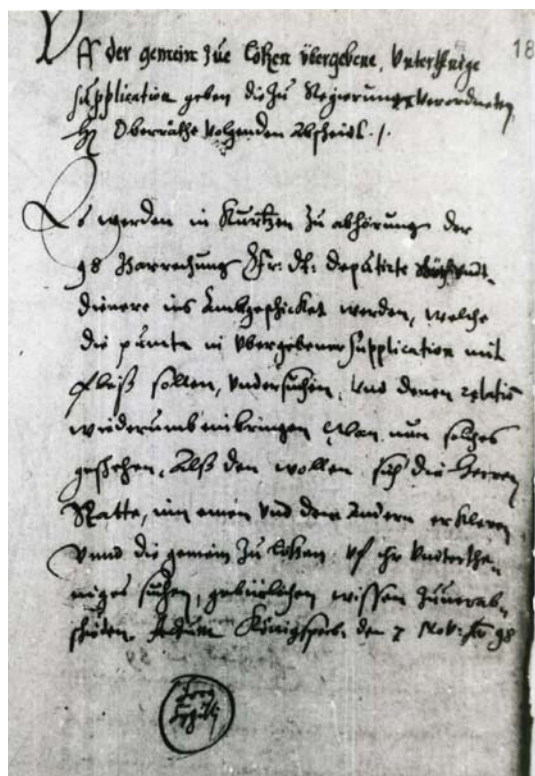 Uff der gemein zue Lötzen übergebene, Unterthenige
supplication geben die zu Regierung verordneten
Hn Oberräthe volgenden Abscheidt ./.
18
Es werden in Kurtzen zu abhörung der
98 Jarrechnung Fr: Dt: deputirte
dienere ins Ambt geschicket werden, welche
die puncte in übergebener Supplication mit
fleiß sollen, undersuchen, und denen relation
wiederumb einbringen Wan nun solches
geschehen, Alß den wollen sich die Herren
Rätte, uff einen und dem Andern erkleren
Unnd die gemein zu Lötzen uf ihr underthe,
niges suchen, gebürlichen wissen zuverab,
scheiden. Actum Königsperk den 7 Nov: Ao 98